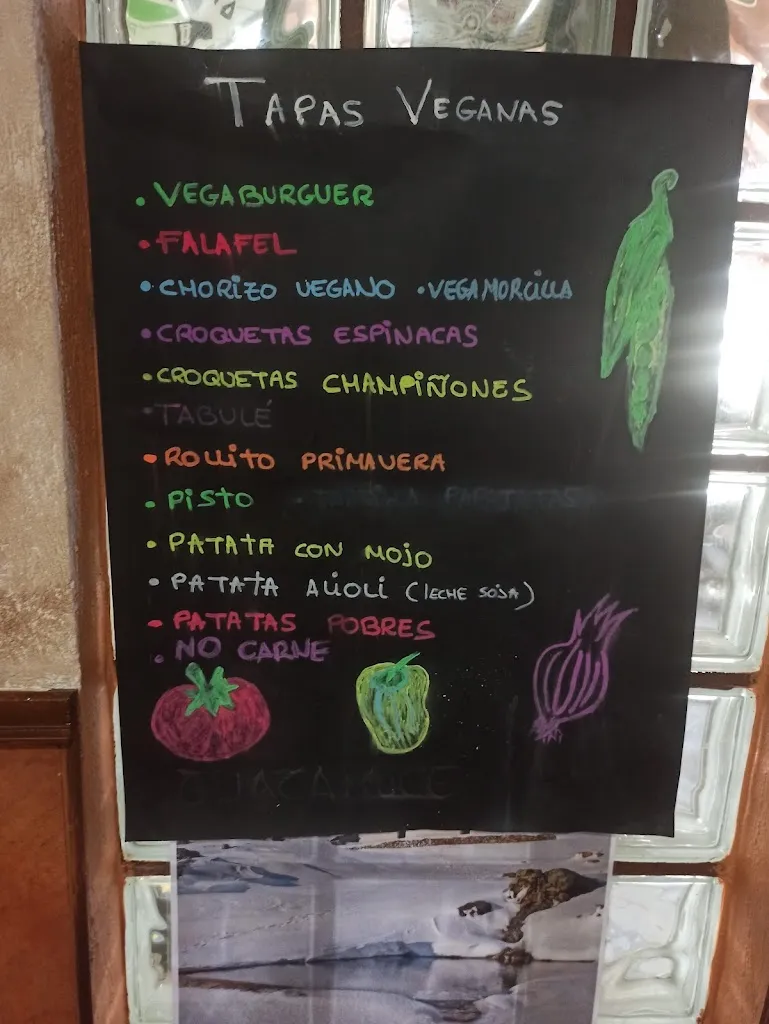 TAPAS VEGANAS
• VEGABURGUER
• FALAFEL
• CHORIZO VEGANO • VEGAMORCILLA
• CROQUETAS ESPINACAS
• CROQUETAS CHAMPIÑONES
• TABULÉ
• ROLLITO PRIMAVERA
• PISTO
• PATATA CON MOJO
• PATATA ALIOLI (LECHE SOJA)
• PATATAS POBRES
• NO CARNE